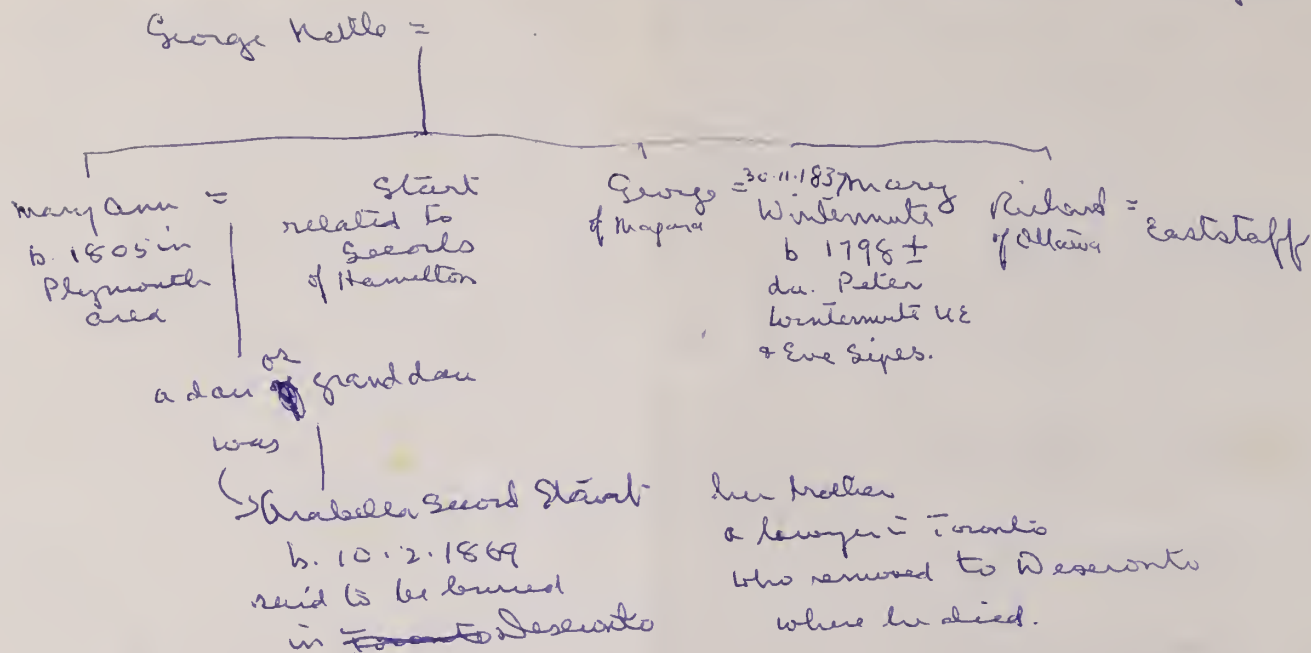 George Nettle =
Mary Ann =
b. 1805 in
Plymouth
area
Start
related to
Secords
of Hamilton
George =
of Niagara
30.11.1837 Mary
Wintermute
b 1798 ±
da. Peter
Wintermute UE
& Eve Sipes.
Richard =
of Ottawa
Eaststaff
a dau or grand dau
was
Arabella Secord Start
b. 10.2.1869
said to be buried
in Toronto Deseronto
her brother
a lawyer = Toronto
who removed to Deseronto
where he died.